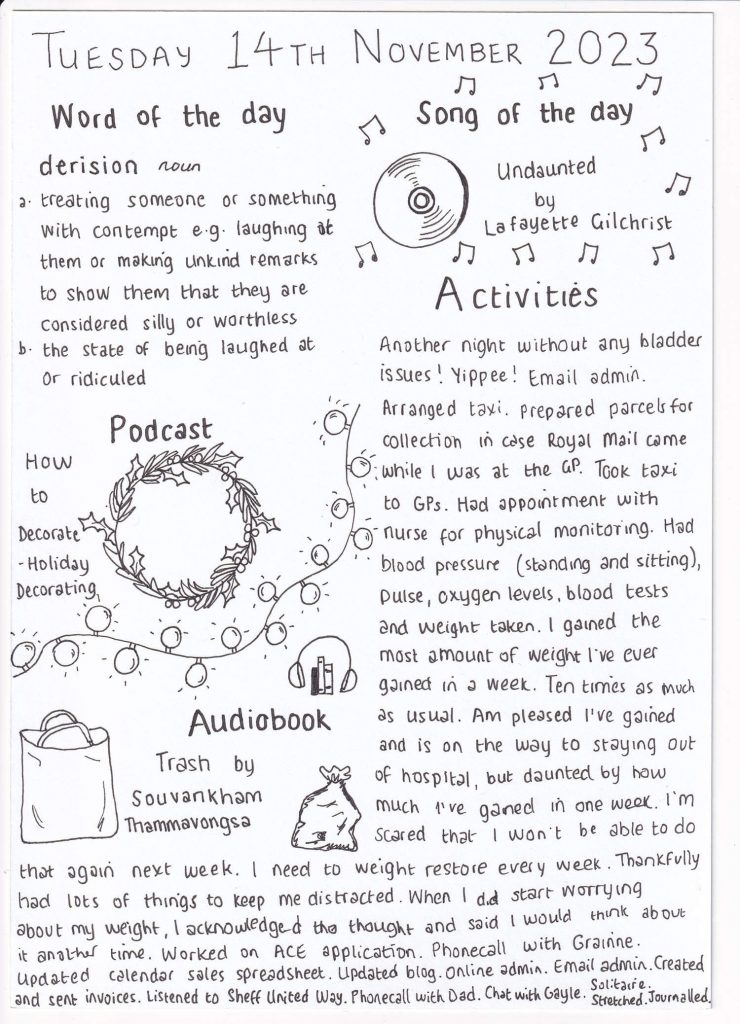 TUESDAY 14TH NOVEMBER 2023
Word of the day
derision noun
a. treating someone or something
with contempt e.g. laughing at
them or making unkind remarks
to show them that they are
considered silly or worthless
b. the state of being laughed at
or ridiculed
Song of the day
Undaunted
by
Lafayette Gilchrist
Podcast
How
to
Decorate
- Holiday
Decorating
Audiobook
Trash by
Souvankham
Thammavongsa
Activities
Another night without any bladder
issues! Yippee! Email admin.
Arranged taxi. Prepared parcels for
collection in case Royal Mail came
while I was at the GP. Took taxi
to GPs. Had appointment with
nurse for physical monitoring. Had
blood pressure (standing and sitting),
pulse, oxygen levels, blood tests
and weight taken. I gained the
most amount of weight I've ever
gained in a week. Ten times as much
as usual. Am pleased I've gained
and is on the way to staying out
of hospital, but daunted by how
much I've gained in one week. I'm
scared that I won't be able to do
that again next week. I need to weight restore every week. Thankfully
had lots of things to keep me distracted. When I did start worrying
about my weight, I acknowledged the thought and said I would think about
it another time. Worked on ACE application. Phonecall with Grainne.
Updated calendar sales spreadsheet. Updated blog. Online admin. Email admin. Created
and sent invoices. Listened to Sheff United Way. Phonecall with Dad. Chat with Gayle. Solitaire.
Stretched. Journalled.